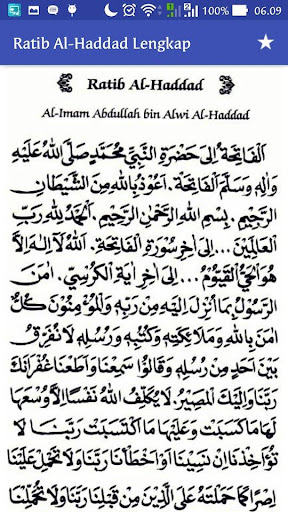 100% 06.09
Ratib Al-Haddad Lengkap
Ratib Al-Haddad
Al-Imam Abdullah bin Alwi Al-Haddad
اَلْفَاتِحَةُ اِلَى حَضْرَةِ النَّبِيِّ مُحَمَّدٍ صَلَّى اللهُ عَلَيْهِ
وَاٰلِهِ وَسَلَّمَ اَلْفَاتِحَةَ. اَعُوْذُ بِاللهِ مِنَ الشَّيْطَانِ
الرَّجِيْمِ. بِسْمِ اللهِ الرَّحْمٰنِ الرَّحِيْمِ. اَلْحَمْدُ لِلهِ رَبِّ
الْعَالَمِيْنَ ... اِلَى اٰخِرِ سُوْرَةِ الْفَاتِحَةِ. اَللهُ لَا اِلٰهَ اِلَّا
هُوَ الْحَيُّ الْقَيُّوْمُ ... اِلَى اٰخِرِ اٰيَةِ الْكُرْسِيِّ. اٰمَنَ
الرَّسُوْلُ بِمَا اُنْزِلَ اِلَيْهِ مِنْ رَبِّهِ وَالْمُؤْمِنُوْنَ كُلٌّ
اٰمَنَ بِاللهِ وَمَلَائِكَتِهِ وَكُتُبِهِ وَرُسُلِهِ لَا نُفَرِّقُ
بَيْنَ اَحَدٍ مِنْ رُسُلِهِ وَقَالُوْا سَمِعْنَا وَاَطَعْنَا غُفْرَانَكَ
رَبَّنَا وَاِلَيْكَ الْمَصِيْرُ لَا يُكَلِّفُ اللهُ نَفْسًا اِلَّا وُسْعَهَا
لَهَا مَا كَسَبَتْ وَعَلَيْهَا مَا اكْتَسَبَتْ رَبَّنَا لَا
تُؤَاخِذْنَا اِنْ نَسِيْنَا اَوْ اَخْطَأْنَا رَبَّنَا وَلَا تَحْمِلْ عَلَيْنَا
اِصْرًا كَمَا حَمَلْتَهُ عَلَى الَّذِيْنَ مِنْ قَبْلِنَا رَبَّنَا وَلَا تُحَمِّلْنَا